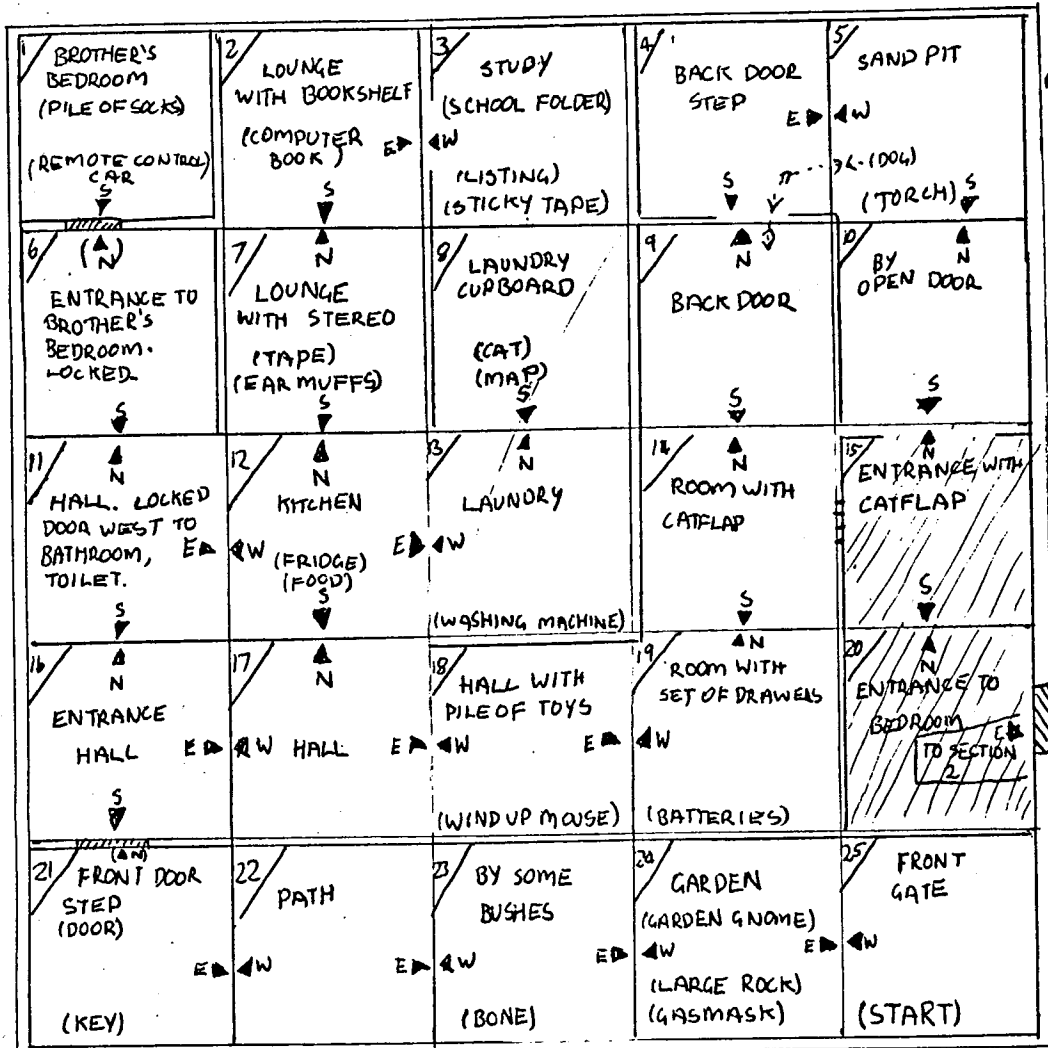 1
BROTHER'S
BEDROOM
(PILE OF SOCKS)
(REMOTE CONTROL)
CAR
S
2
LOUNGE
WITH BOOKSHELF
(COMPUTER
BOOK)
E
S
3
STUDY
(SCHOOL FOLDER)
W
(LISTING)
(STICKY TAPE)
4
BACK DOOR
STEP
E
S
5
SAND PIT
W
(DOG)
(TORCH)
S
6
( )
N
ENTRANCE TO
BROTHER'S
BEDROOM.
LOCKED.
S
7
N
LOUNGE
WITH STEREO
(TAPE)
(EAR MUFFS)
S
8
LAUNDRY
CUPBOARD
(CAT)
(MAP)
S
9
N
BACK DOOR
S
10
N
BY
OPEN DOOR
S
11
N
HALL. LOCKED
DOOR WEST TO
BATHROOM,
TOILET.
E
S
12
N
KITCHEN
W
E
(FRIDGE)
(FOOD)
S
13
N
LAUNDRY
W
(WASHING MACHINE)
14
N
ROOM WITH
CATFLAP
S
15
N
ENTRANCE WITH
CATFLAP
S
16
N
ENTRANCE
HALL
E
S
17
N
W HALL E
18
HALL WITH
PILE OF TOYS
W
E
(WIND UP MOUSE)
19
N
ROOM WITH
SET OF DRAWERS
W
(BATTERIES)
20
N
ENTRANCE TO
BEDROOM
E
TO SECTION
2
21
(N)
FRONT DOOR
STEP
(DOOR)
E
(KEY)
22
PATH
W
E
23
BY SOME
BUSHES
W
E
(BONE)
24
GARDEN
(GARDEN GNOME)
W
E
(LARGE ROCK)
(GASMASK)
25
FRONT
GATE
W
(START)